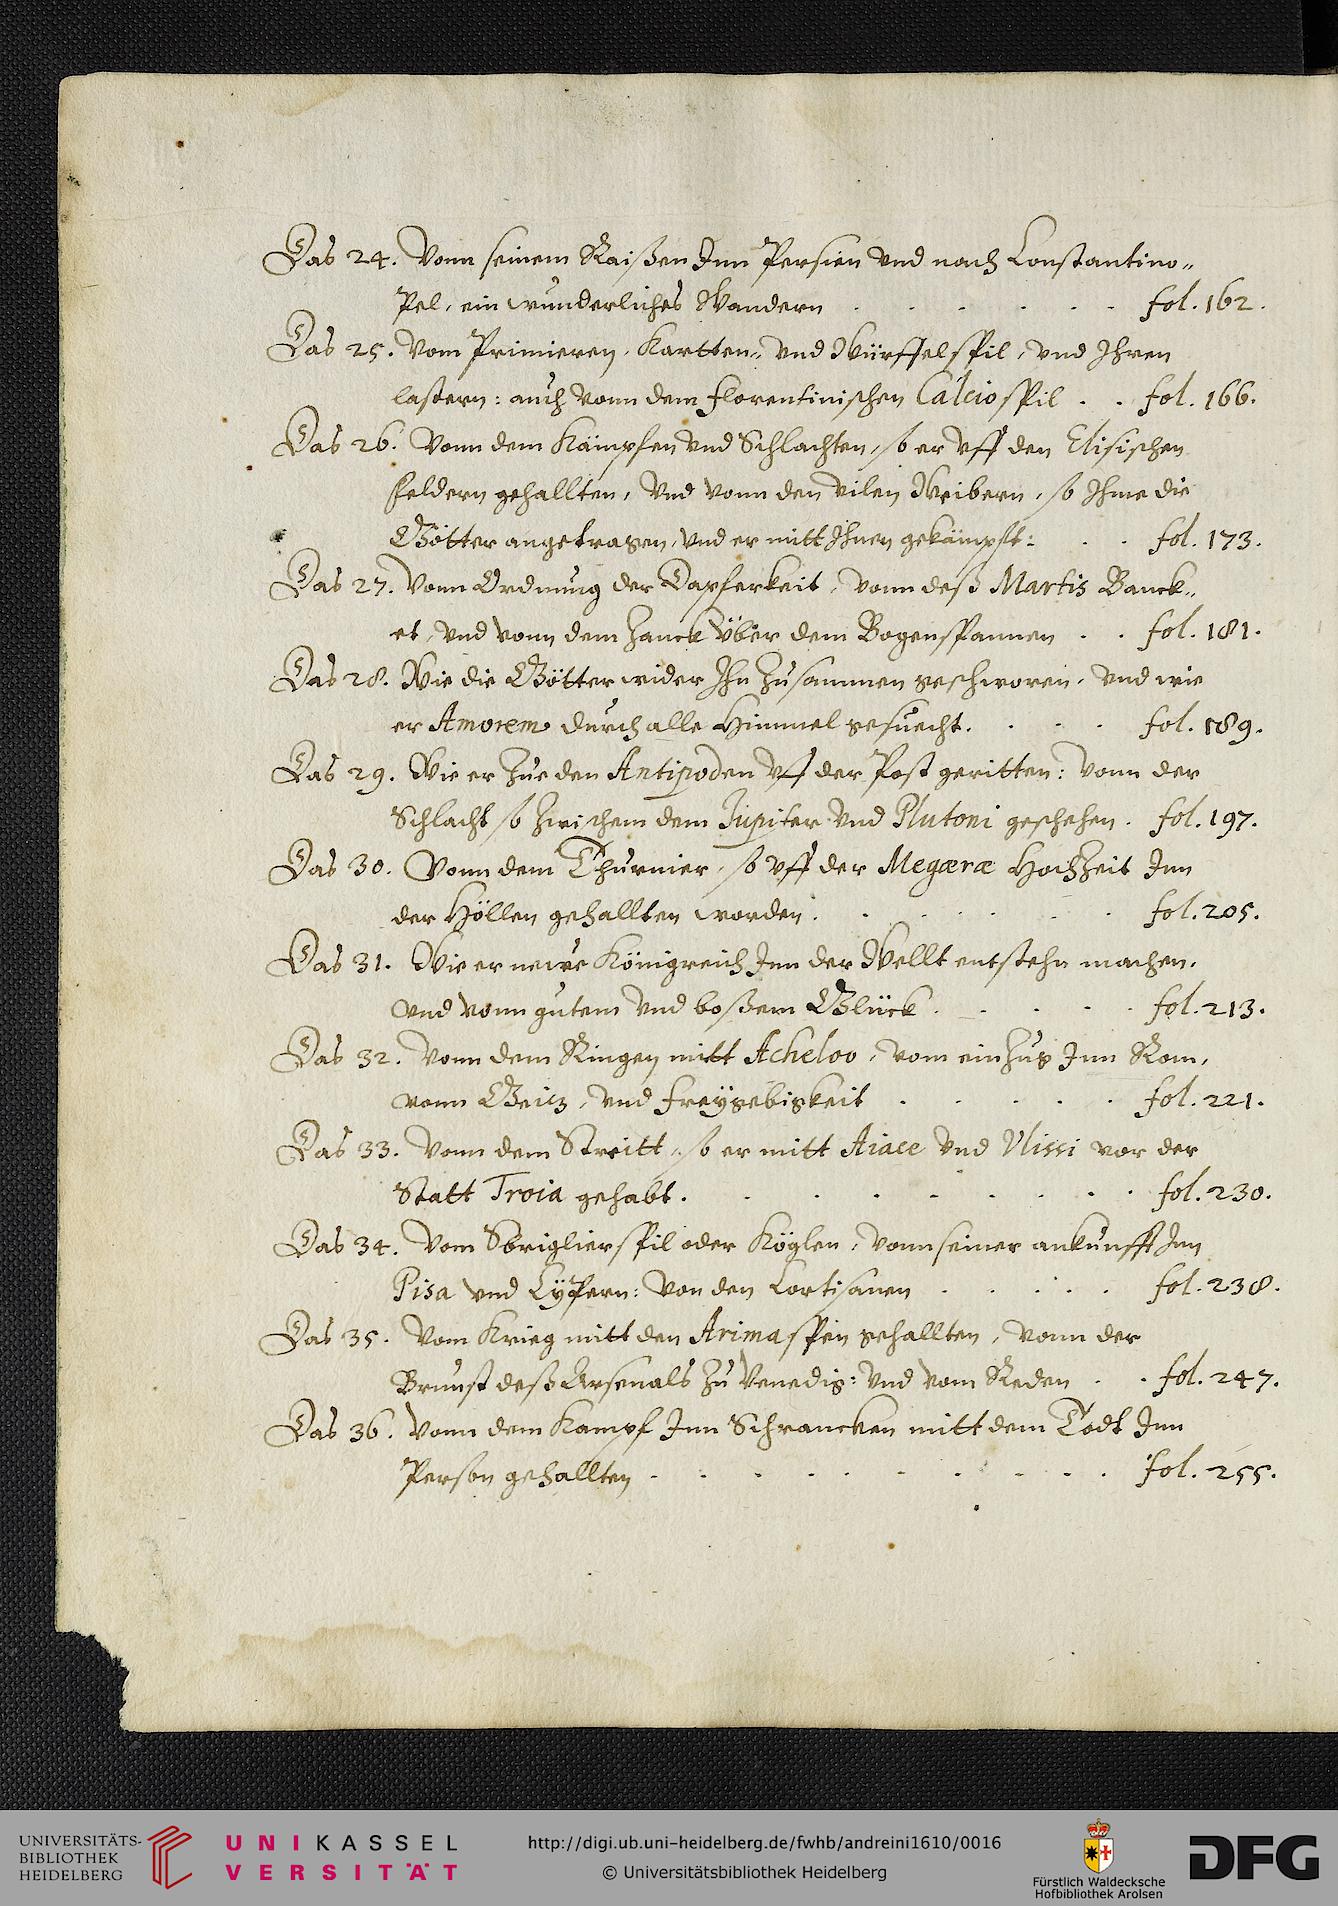 Das 24. Vonn seinem Raißen Inn Persien vnd nach Constantino„
Pel, ein wunderliches Wandern . . . . . . fol. 162.
Das 25. Vom Primieren, Kartten„ vnd Würffelspil, vnd Ihren
lastern: auch vonn dem florentinischen Calcio spil . . fol. 166.
Das 26. Vonn dem Kämpfen vnd Schlachten, so er vff den Elisischen
feldern gehallten, vnd vonn den vilen Weibern, so Ihme die
Götter angetragen, vnd er mitt Ihnen gekämpft: . . fol. 173.
Das 27. Vonn Ordnung der Dapferkeit, vonn deß Martis Banck„
et, vnd vonn dem Zanck über dem Bogenspannen . . fol. 181.
Das 28. Wie die Götter wider Ihn zusammen geschworen, vnd wie
er Amorem durch alle Himmel gesuecht. . . . fol. 189.
Das 29. Wie er zue den Antipoden vff der Post geritten: vonn der
Schlacht so zwichem dem Iupiter vnd Plutoni geschehen. fol. 197.
Das 30. Vonn dem Thurnier, so vff der Megæræ Hochzeit Inn
der Höllen gehallten worden. . . . . . fol. 205.
Das 31. Wie er newe Königreich Inn der Wellt entstehn machen,
vnd vonn gutem vnd boßem Glück . . . . . fol. 213.
Das 32. Vonn dem Ringen mitt Acheloo, vom einzug Inn Rom,
vonn Geicz, vnd freygebigkeit . . . . . fol. 221.
Das 33. Vonn dem Streitt, so er mitt Aiace vnd Vlissi vor der
Statt Troia gehabt. . . . . . . . . fol. 230.
Das 34. Vom Sbriglierspil oder Köglen, vonn seiner ankunfft Inn
Pisa vnd Cypern: von den Cortisanen . . . . . fol. 238.
Das 35. Vom Krieg mitt den Arimaspen gehallten, vonn der
Brunst deß Arsenals zu Venedig: vnd vom Reden . . fol. 247.
Das 36. Vonn dem Kampf Inn Schrancken mitt dem Todt Inn
Person gehallten . . . . . . . . . fol. 255.
UNIVERSITÄTS-
BIBLIOTHEK
HEIDELBERG
UNIKASSEL
VERSITÄT
http://digi.ub.uni-heidelberg.de/fwhb/andreini1610/0016
© Universitätsbibliothek Heidelberg
Fürstlich Waldecksche
Hofbibliothek Arolsen
DFG